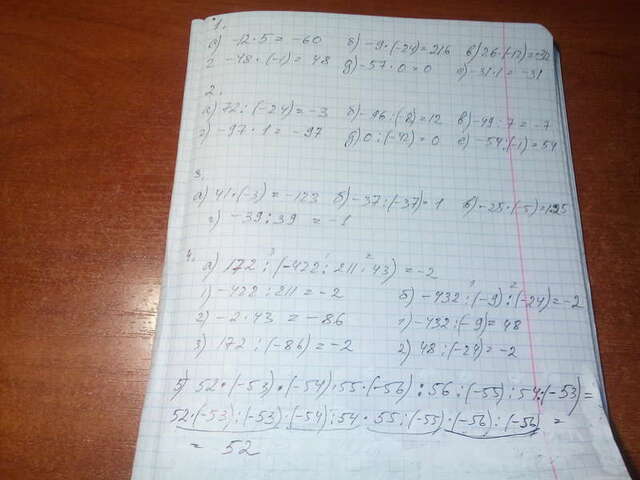 1.
а) -12·5 = -60 б) -9·(-24) = 216 в) 26·(-12) =
г -48·(-1) = 48 д) -57·0 = 0 е) -31·1 = -31
2.
а) 72:(-24) = -3 б) -96:(-8) = 12 в) -49:7 = -7
г) -97·1 = -97 д) 0:(-42) = 0 е) -54:(-1) = 54
3.
а) 41·(-3) = -123 б) -37:(-37) = 1 в) -25·(-5) = 125
г) -39:39 = -1
4.
а) 172:(-422:211·43) = -2
1) -422:211 = -2 б) -432:(-9):(-24) = -2
2) -2·43 = -86 1) -432:(-9) = 48
3) 172:(-86) = -2 2) 48:(-24) = -2
5) 52·(-53)·(-54)·55·(-56):56:(-55):54:(-53) =
52·(-53):(-53)·(-54):54·55:(-55)·(-56):(-56) =
= 52